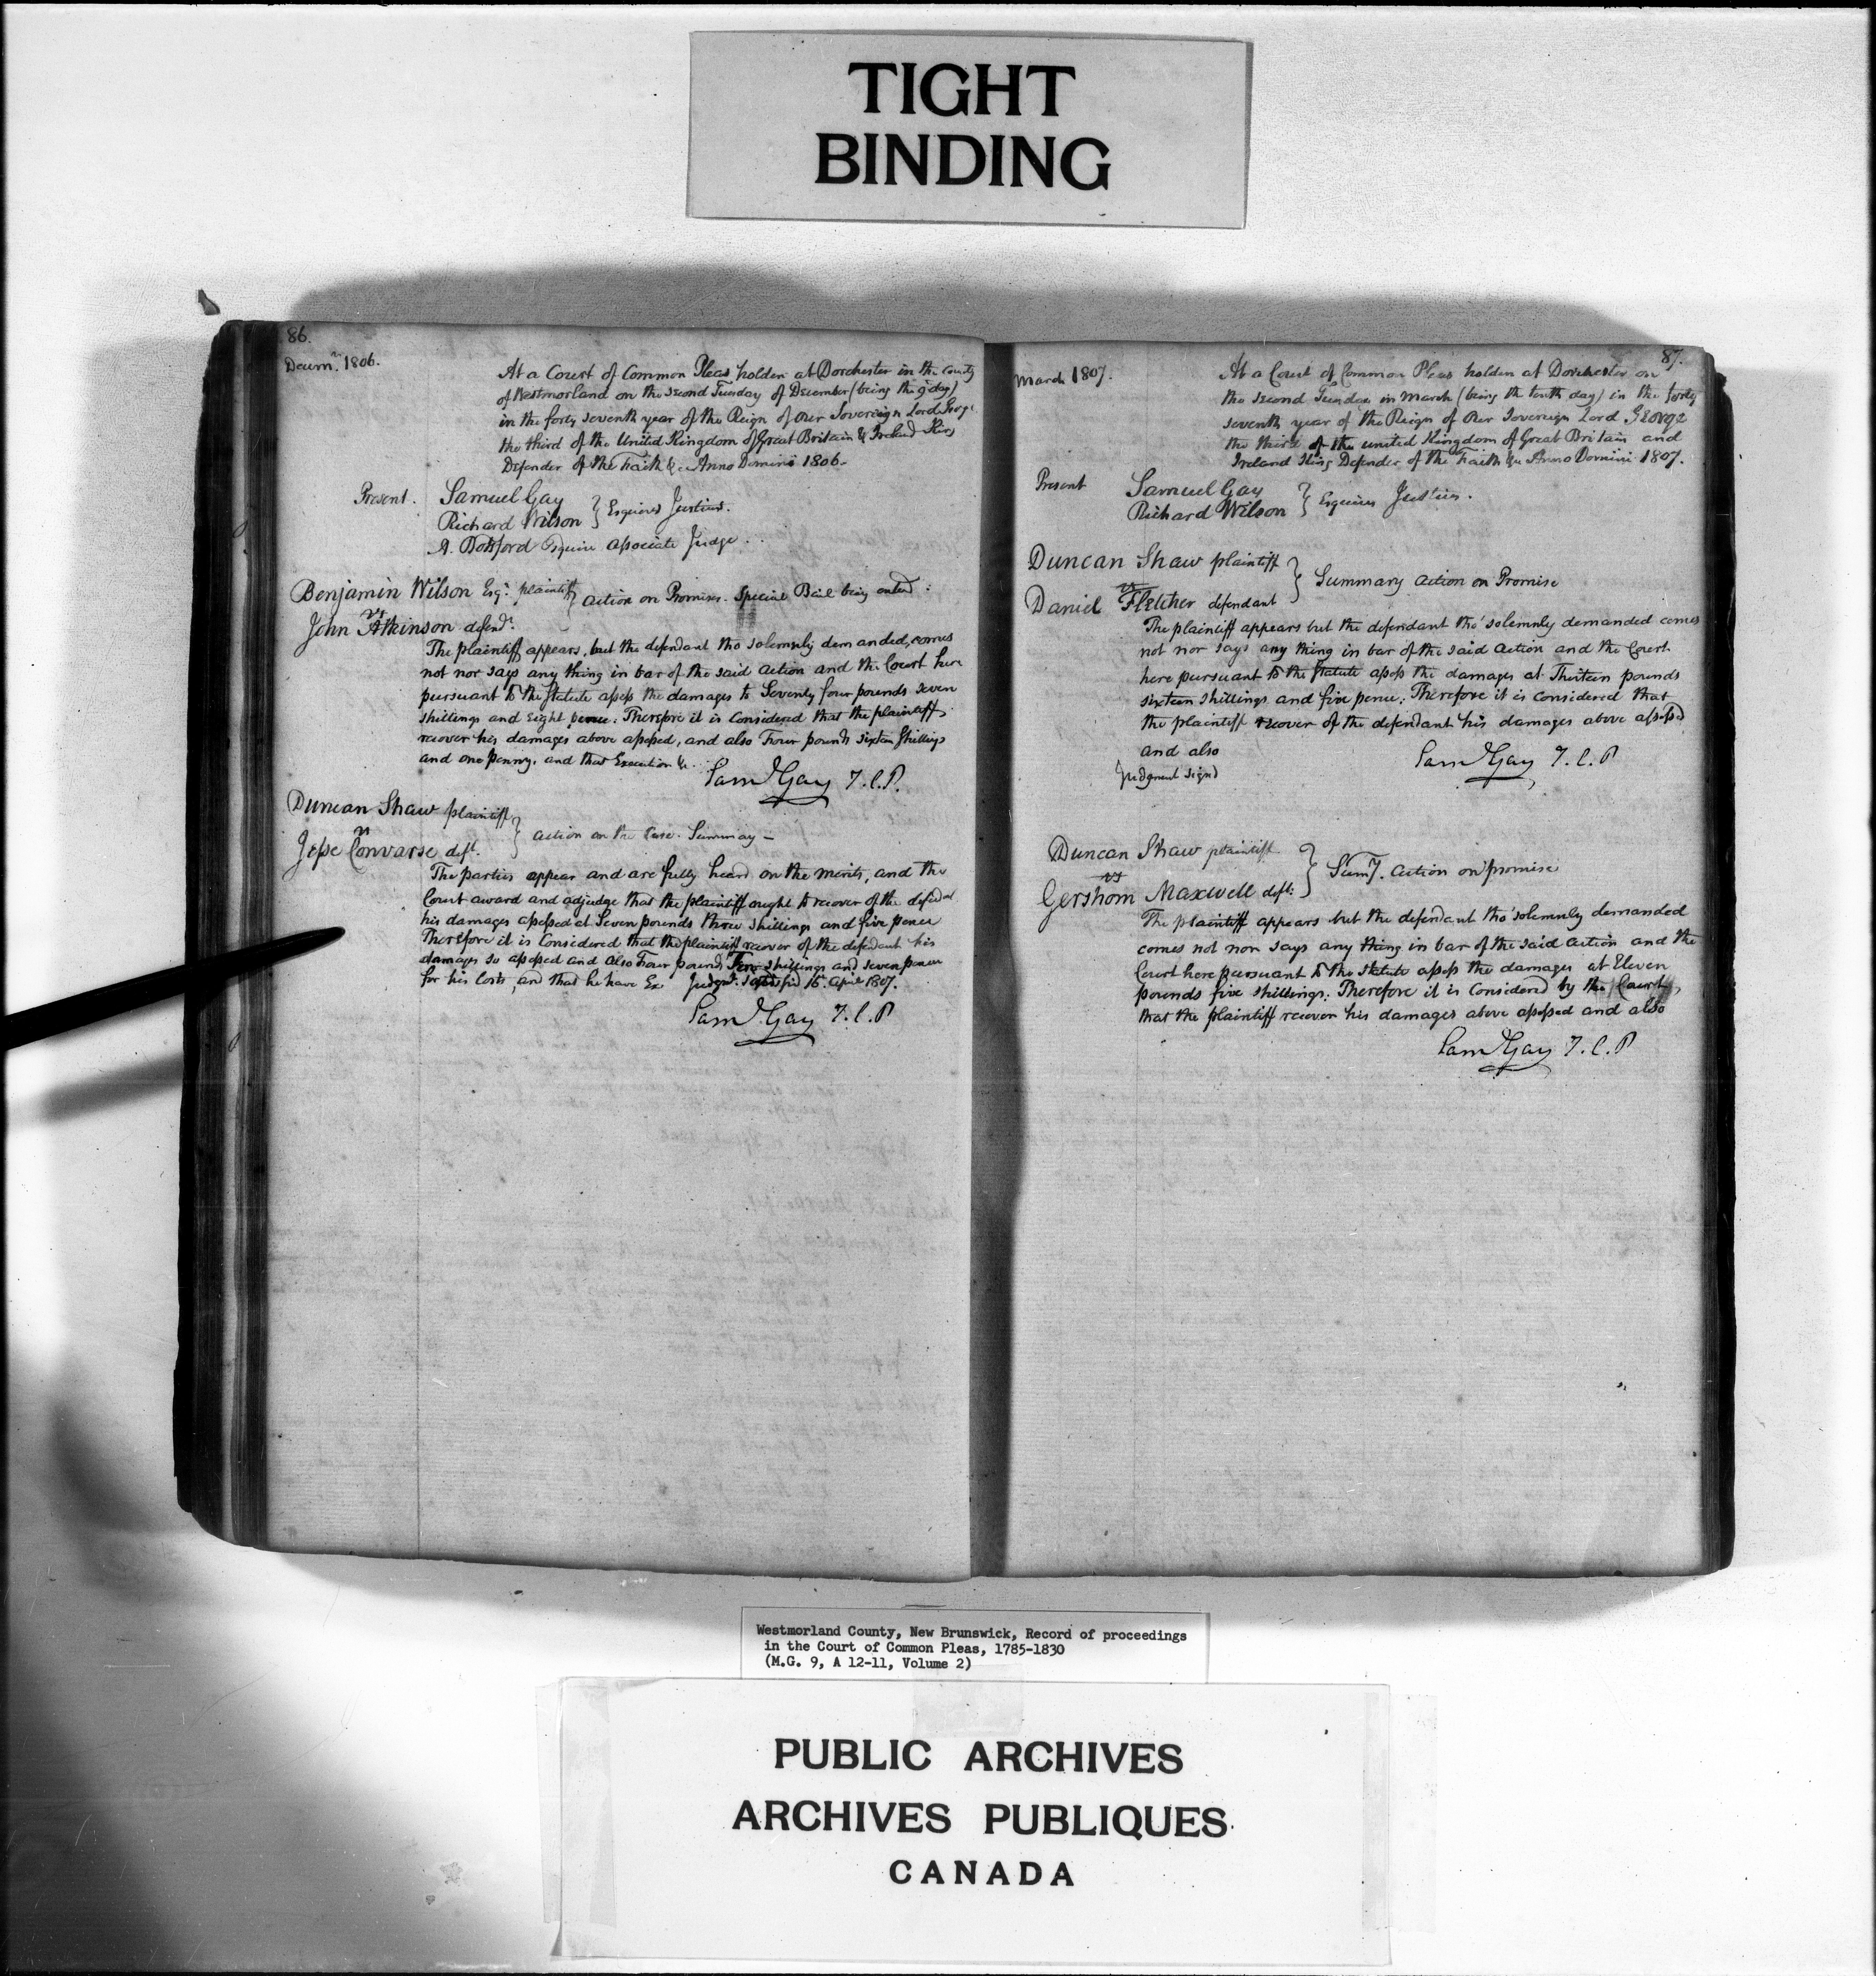 TIGHT
BINDING
86.
Decem.r 1806.
At a Court of Common Pleas holden at Dorchester in the County
of Westmorland on the second Tuesday of December (being the 9 day)
in the forty seventh year of the Reign of our Sovereign Lord George
the third of the United Kingdom of Great Britain & Ireland King
Defender of the Faith &c Anno Domini 1806.
Present. Samuel Gay
Richard Wilson } Esquires Justices.
A. Botsford Esquire Associate Judge.
Benjamin Wilson Esq.r plaintiff } Action on Promises. Special Bail being entered:
vs
John Atkinson defend.t
The plaintiff appears, but the defendant tho solemnly demanded, comes
not nor says any thing in bar of the said Action and the Court here
pursuant to the statute assess the damages to Seventy four pounds seven
shillings and Eight pence: Therefore it is Considered that the plaintiff
recover his damages above assessed, and also Four pounds sixteen Shillings
and one penny. and that Execution &c.
Sam.l Gay J.C.P.
Duncan Shaw plaintiff
vs } Action on the Case. Summary —
Jesse Convarse deft.
The parties appear and are fully heard on the merits, and the
Court award and adjudge that the plaintiff ought to recover of the defend.t
his damages assessed at Seven pounds three shillings and five pence
Therefore it is Considered that the plaintiff recover of the defendant his
damages so assessed and also Four pounds Ten shillings and seven pence
for his Costs, and that he have Ex Judgm.t 16.th April 1807.
Sam.l Gay J.C.P
87.
March 1807.
At a Court of Common Pleas holden at Dorchester on
the second Tuesday in March (being the tenth day) in the forty
seventh year of the Reign of Our Sovereign Lord George
the third of the united Kingdom of Great Britain and
Ireland King Defender of the Faith &c Anno Domini 1807.
Present Samuel Gay
Richard Wilson } Esquires Justices.
Duncan Shaw plaintiff
vs } Summary Action on Promise
Daniel Fletcher defendant
The plaintiff appears but the defendant tho' solemnly demanded comes
not nor says any thing in bar of the said Action and the Court
here pursuant to the Statute assess the damages at Thirteen pounds
sixteen shillings and five pence: Therefore it is considered that
the plaintiff recover of the defendant his damages above assessed
and also
Judgment signd
Sam.l Gay J.C.P
Duncan Shaw plaintiff
vs } Sum.y Action on promise
Gershom Maxwell deft:
The plaintiff appears but the defendant tho' solemnly demanded
comes not nor says any thing in bar of the said Action and the
Court here pursuant to the statute assess the damages at Eleven
pounds five shillings: Therefore it is Considered by the Court,
that the plaintiff recover his damages above assessed and also
Sam.l Gay J.C.P
Westmorland County, New Brunswick, Record of proceedings
in the Court of Common Pleas, 1785-1830
(M.G. 9, A 12-11, Volume 2)
PUBLIC ARCHIVES
ARCHIVES PUBLIQUES
CANADA